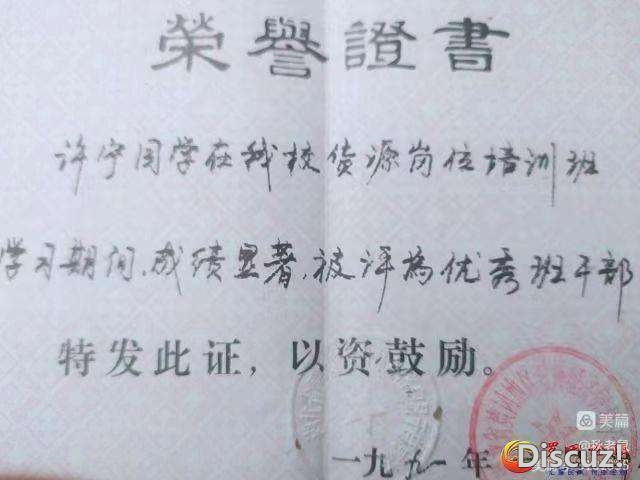 榮譽證書
许宁同学在我校货源岗位培训班
学习期间、成绩显著,被评为优秀班干部
特发此证,以资鼓励。
一九九一年
美篇
@秋老鼠
Discuz!